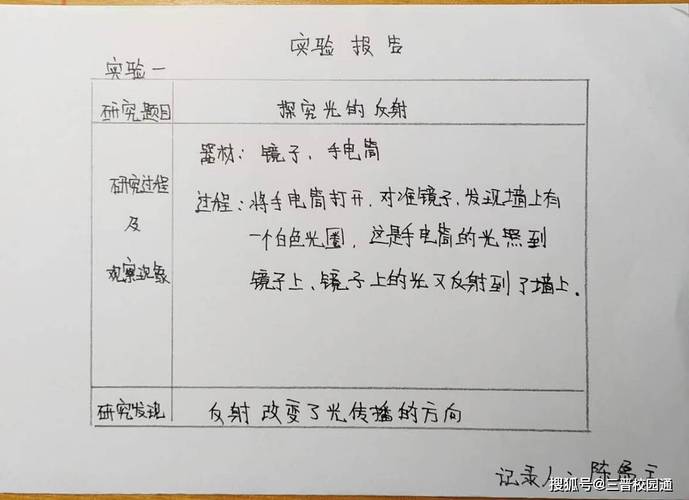 实验报告
实验一
研究题目
探究光的反射
研究过程
及
观察现象
器材：镜子、手电筒
过程：将手电筒打开，对准镜子，发现墙上有
一个白色光圈，这是手电筒的光照到
镜子上、镜子上的光又反射到了墙上。
研究发现
反射改变了光传播的方向
记录人：陈
搜狐号@三普校园通